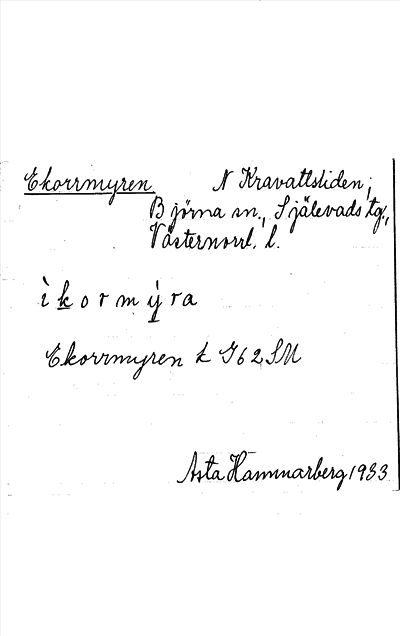 Ekorrmyren N Kravattsliden;
Björna sn., Själevads tg.,
Västernorrl. l.
ìkormýra
Ekorrmyren k J62SU
Asta Hammarberg 1933